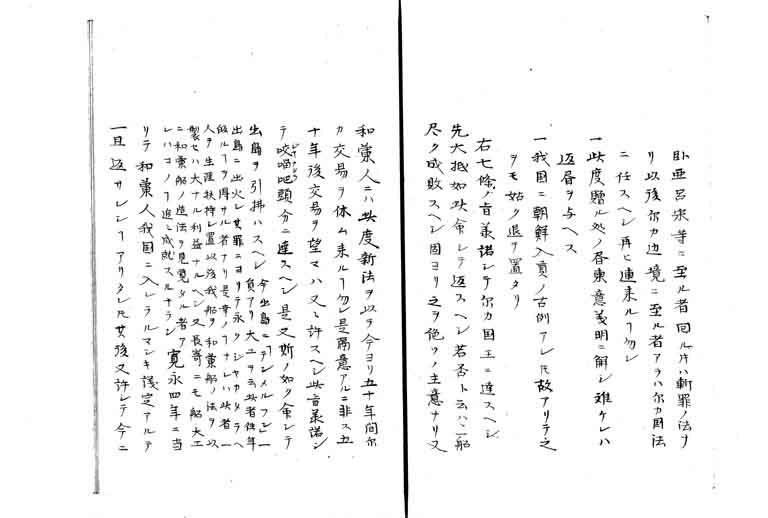 臥亜呂采等ニ至ル者回ル片ハ斬罪ノ法ヲ
リ以後尔カ辺境ニ至ル者アラハ尔カ国法
ニ任スヘシ再ヒ連来ルヿ勿レ
一此度贈ル処ノ書東意義明ニ解シ難ケレハ
返屠ヲ与ヘス
一我国ニ朝鮮入貢ノ古例アレ𪜈故アリテ之
ヲモ姑ク退ケ置タリ
右七條ノ旨羕諾シテ尔カ国王ニ達スヘシ
先大抵如此命シテ返スヘシ若否ト云ハヽ船
尽ク成敗スヘシ固ヨリ之ヲ絶ツノ主意ナリ又
和蘭人ニハ此度新法ヲ以テ今ヨリ五十年間尔
カ交易ヲ休ム来ルヿ勿レ是隔意アルニ非ス五
十年後交易ヲ望マハ又々許スヘシ此旨羕諾シ
テ咬𠺕吧頭分ニ達スヘシ是又斯ノ如ク命シテ
出島ヲ引拂ハスヘシ
今出島ニ「テンメルフレ」一
員アリ大工ヲ云此者往年
出島ニ出火シ其罪ニヨリテ永クジャカタラヘ
皈ルヿヲ得サル者ナリ是幸ノヿナレハ此者一
人ヲ生涯扶持シ置以後我船ヲ和蘭船ノ法ヲ以
製セハ大ナル利益ナルヘシ又長嵜ニモ船大工
ニ和蘭船ノ造法ヲ見覚タル者ア
レハコノヿ速ニ成就スルナラン
寛永四年ニ当
リテ和蘭人我国ニ入レラルマシキ議定アルテ
一旦返サレシヿアリタレ𪜈其後又許シテ今ニ